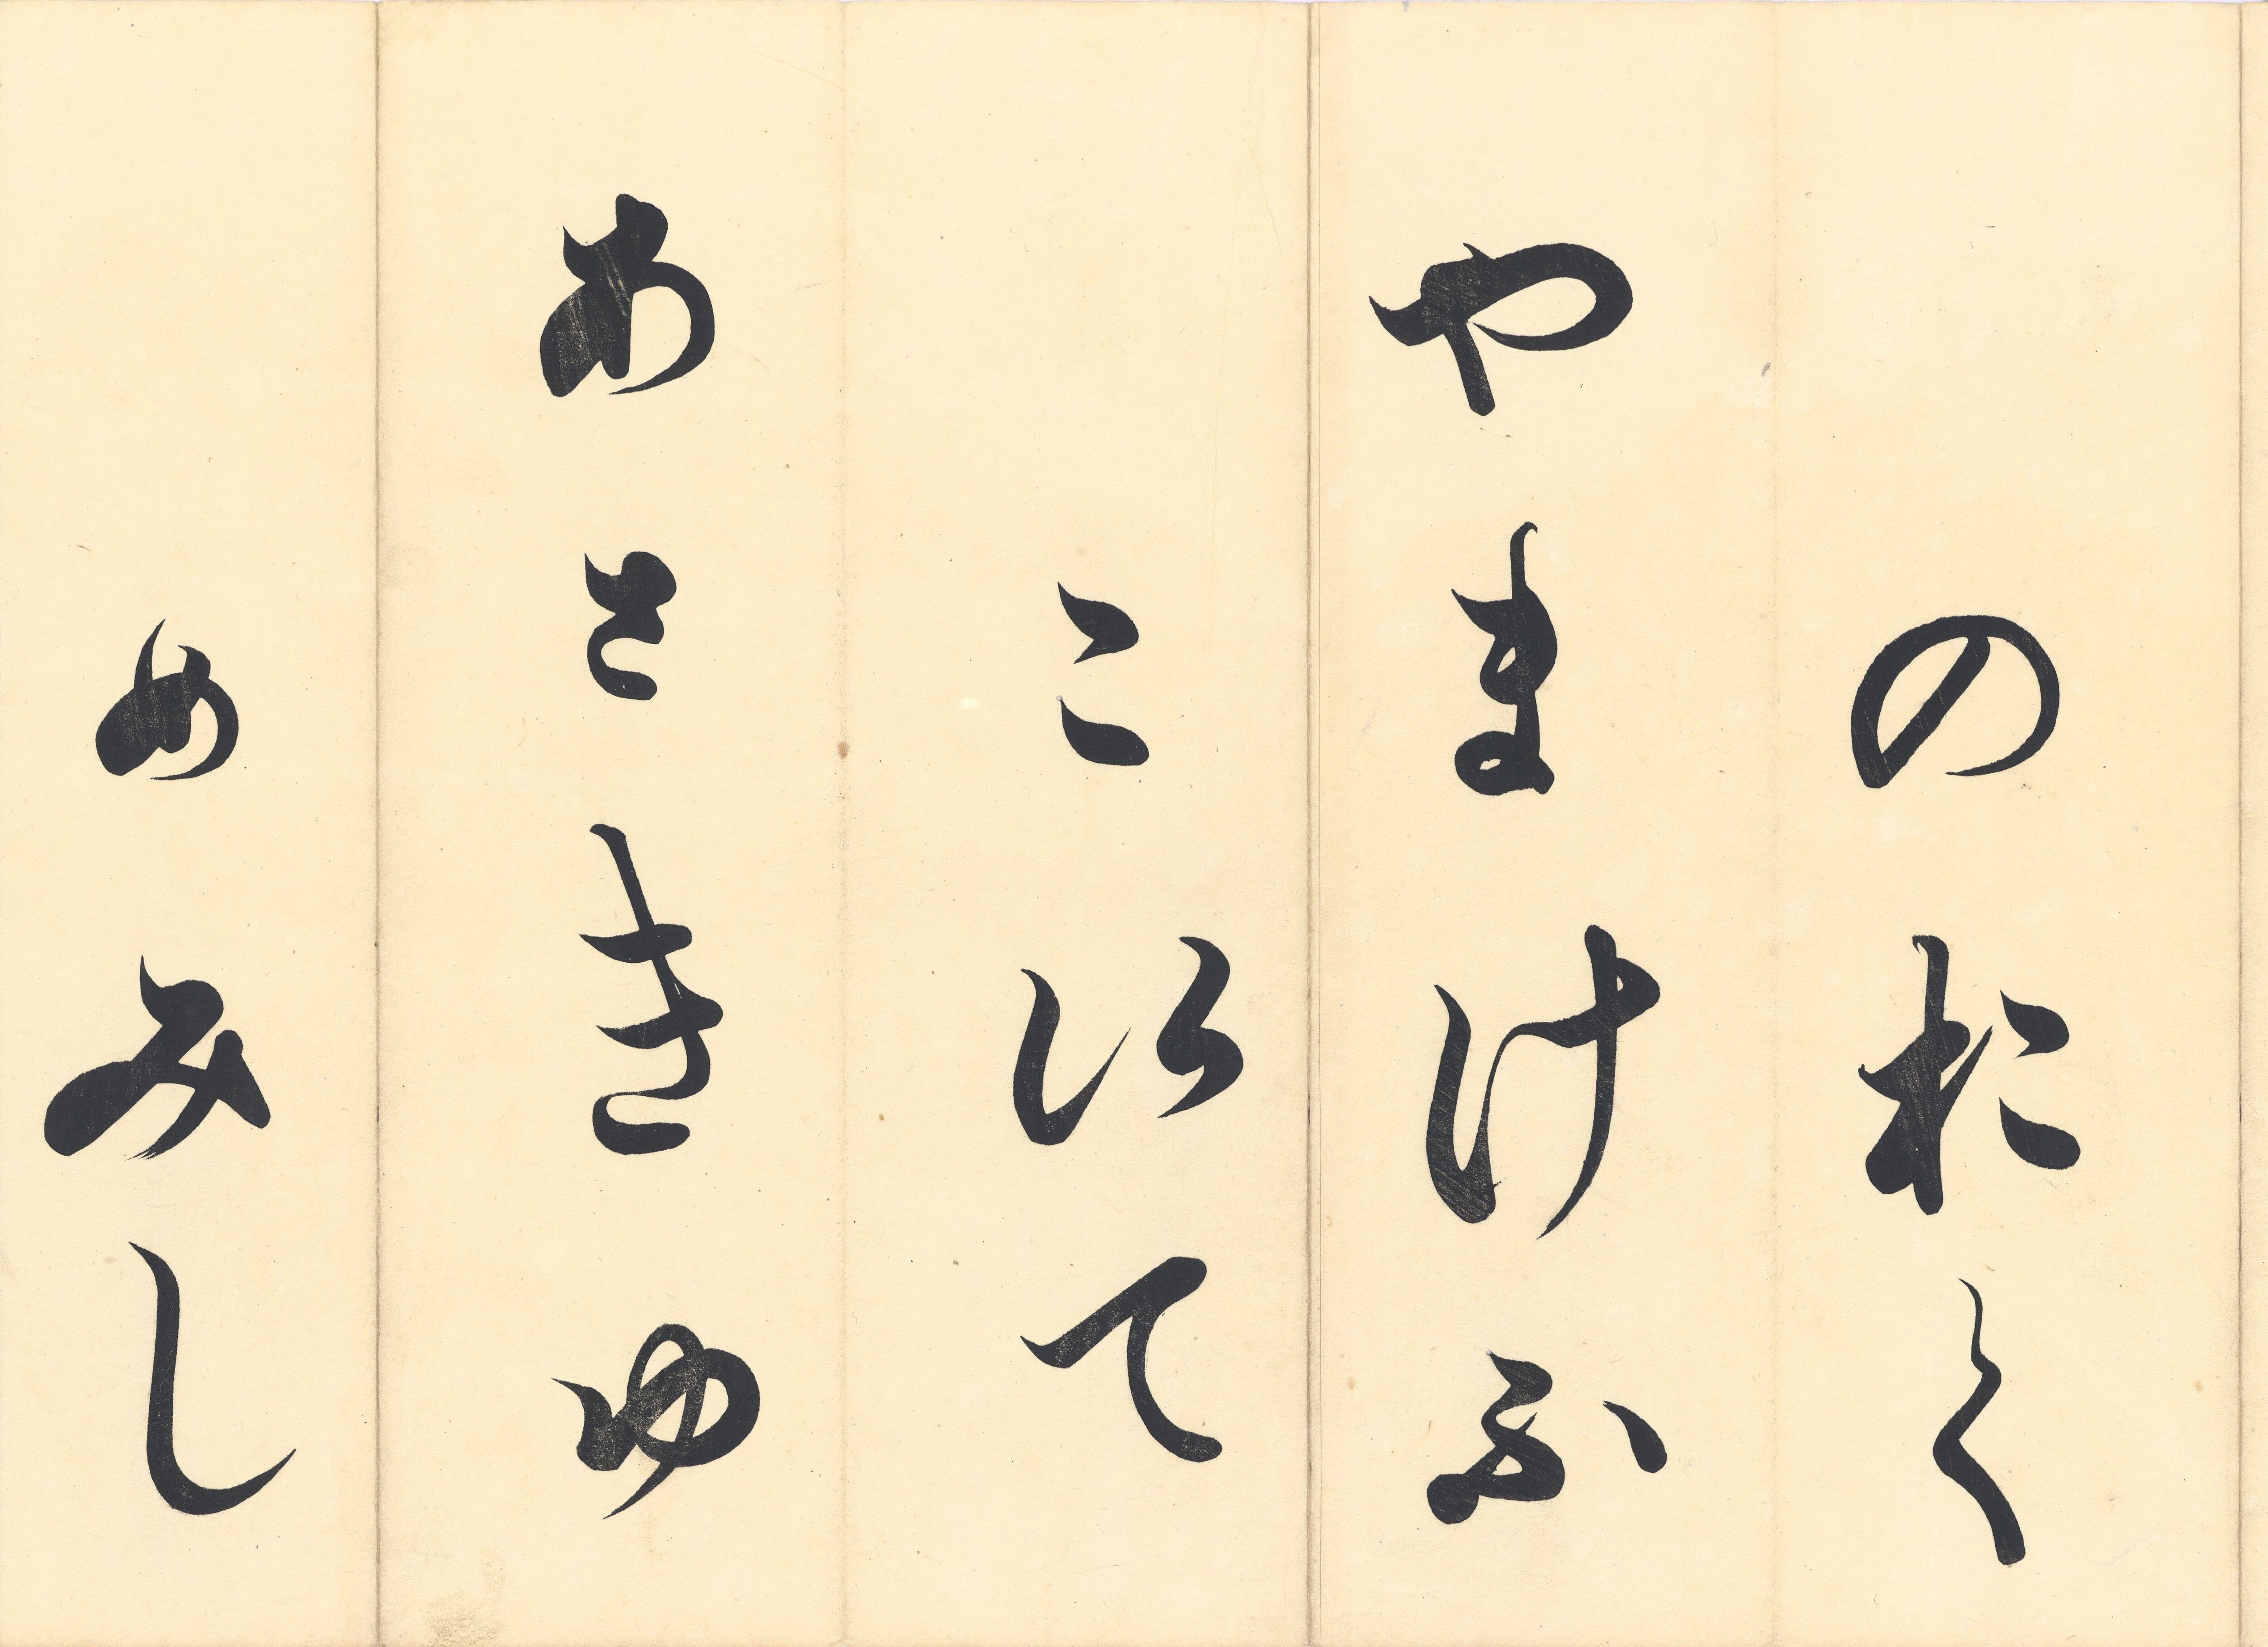 のおく
やまけふ
こえて
あさきゆ
めみし